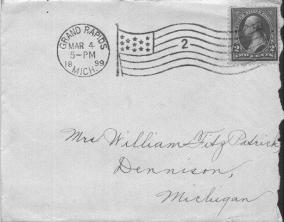 GRAND RAPIDS
MAR 4
5-PM
1899
MICH.
2
2 2
Mrs William FitzPatrick
Dennison,
Michigan